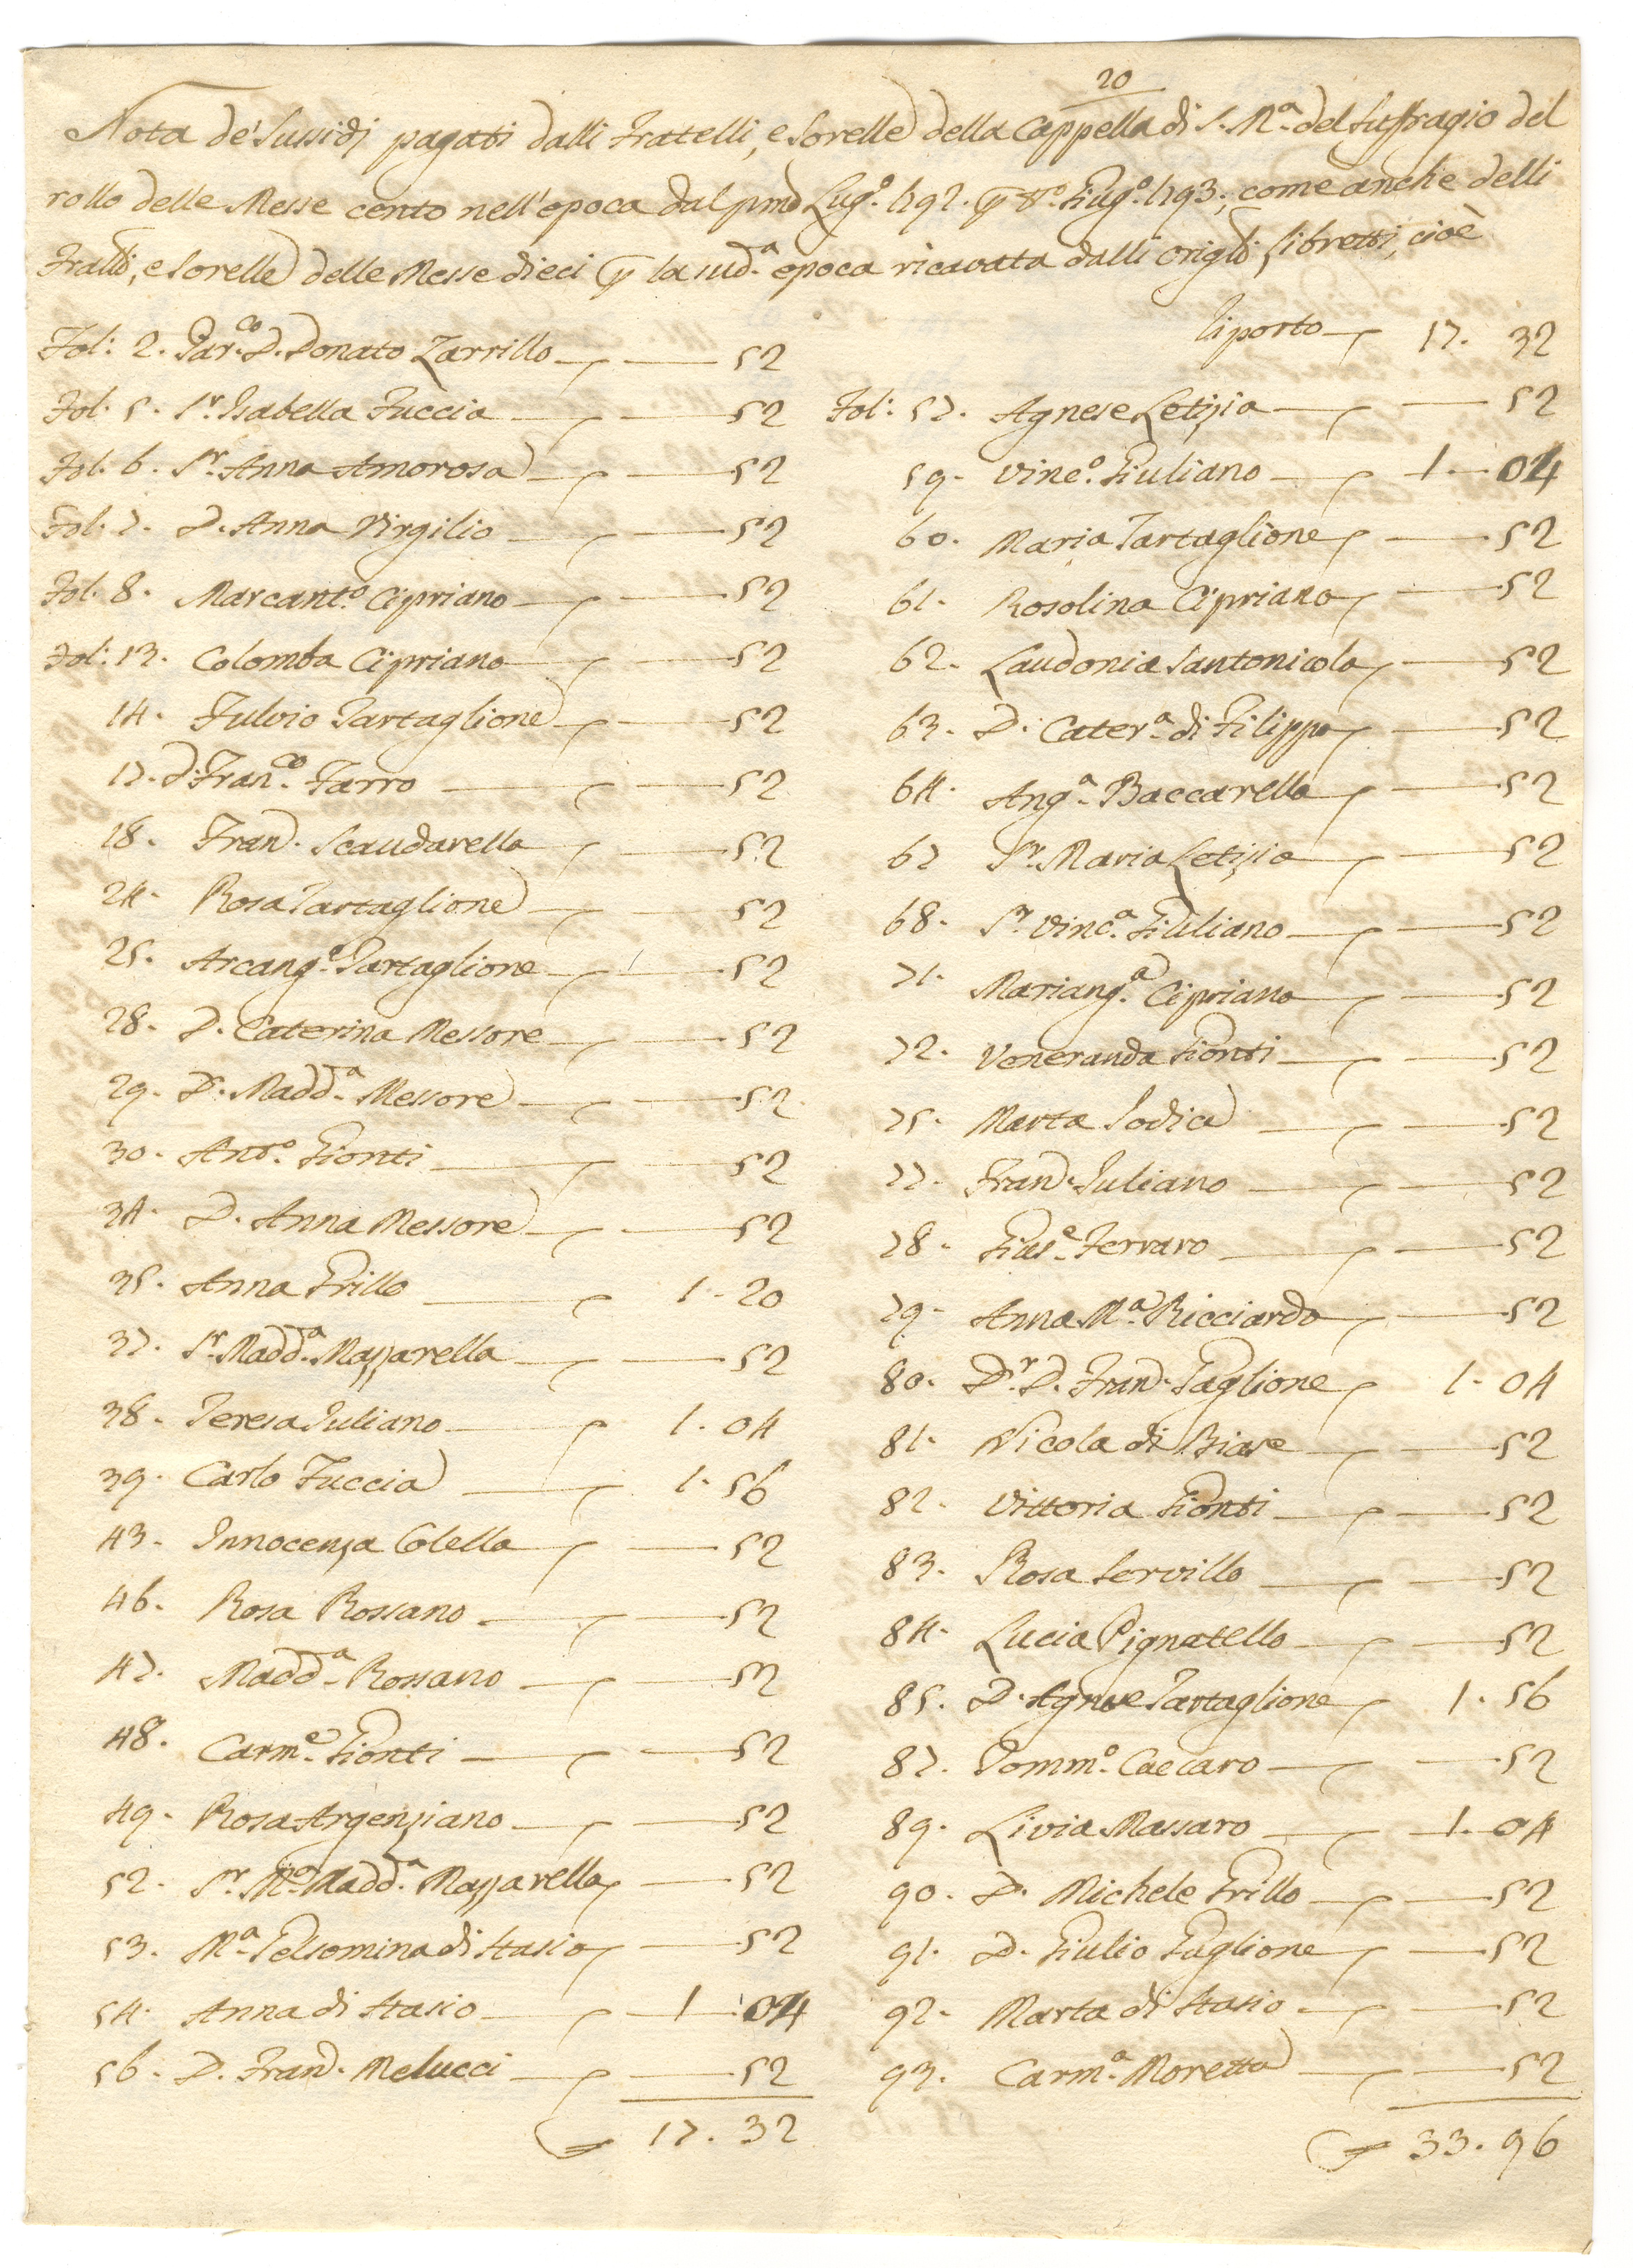 20
Nota de' Sussidj pagati dalli Fratelli, e Sorelle della Cappella di S. Mª. del Suffragio del
rollo delle Messe cento nell'epoca dal pmo Lugº. 1792. Giugº. 1793; come anche delli
Fratlli, e Sorelle delle Messe dieci la sudª. epoca ricavata dalli origli libretti, cioè
Fol: 2. Parco. D. Donato Zarrillo — 52
Fol. 5. Sr. Isabella Fuccia — 52
Fol. 6. Sr. Anna Amorosa — 52
Fol. 7. D. Anna Virgilio — 52
Fol. 8. Marcantº. Cipriano — 52
Fol: 13. Colomba Cipriano — 52
14. Fulvio Tartaglione — 52
17. D. Franco. Farro — 52
18. Franc. Scaudarella — 52
24. Rosa Tartaglione — 52
25. Arcangº. Tartaglione — 52
28. D. Caterina Messore — 52
29. D. Maddª. Messore — 52
30. Antº. Gionti — 52
34. D. Anna Messore — 52
35. Anna Grillo — 1. 20
37. Sr. Maddª. Mazzarella — 52
38. Teresa Iuliano — 1. 04
39. Carlo Fuccia — 1. 56
43. Innocenza Colella — 52
46. Rosa Rossano — 52
47. Maddª. Rossano — 52
48. Carmº. Gionti — 52
49. Rosa Argenziano — 52
52. Sr. Mª. Maddª. Mazzarella — 52
53. Mª. Gelsomina di Stasio — 52
54. Anna di Stasio — 1 — 04
56. D. Franc. Melucci — 52
17. 32
Riporto — 17. 32
Fol: 57. Agnese Letizia — 52
59. Vincº. Giuliano — 1. 04
60. Maria Tartaglione — 52
61. Rosolina Cipriano — 52
62. Laudonia Santonicola — 52
63. D. Caterª. di Filippo — 52
64. Angª. Baccarella — 52
67 Sr. Maria Letizia — 52
68. Sr. Vincª. Giuliano — 52
71. Mariangª. Cipriano — 52
72. Veneranda Gionti — 52
75. Marta Iodice — 52
77. Franc. Iuliano — 52
78. Giuse. Ferraro — 52
79. Anna Mª. Ricciardo — 52
80. Dr. D. Franc. Taglione — 1. 04
81. Nicola di Biase — 52
82. Vittoria Gionti — 52
83. Rosa Servillo — 52
84. Lucia Pignatello — 52
85. D. Agnese Tartaglione — 1. 56
87. Tommº. Caecaro — 52
89. Livia Massaro — 1. 04
90. D. Michele Grillo — 52
91. D. Giulio Taglione — 52
92. Marta di Stasio — 52
93. Carmª. Moretta — 52
33. 96